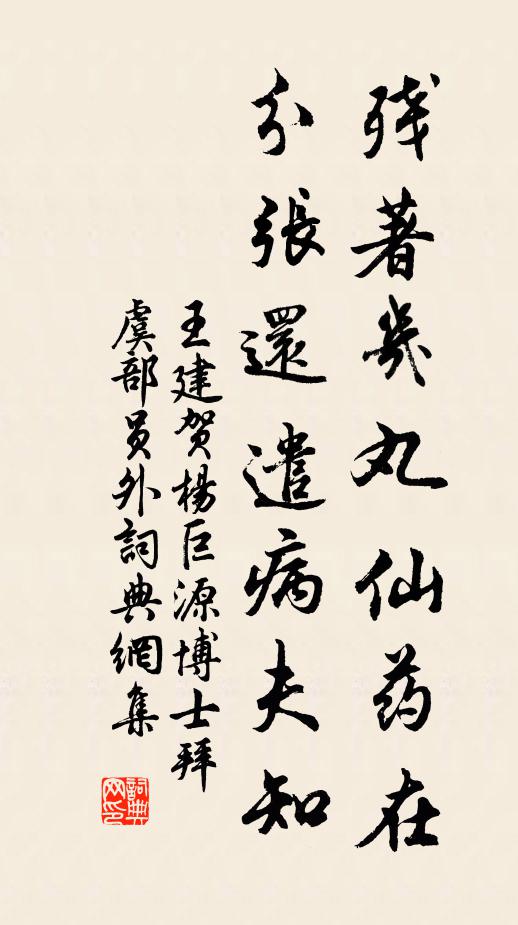 残著幾丸仙药在
分張還遣病夫知
王建贺楊巨源博士拜
虞部員外詞典網集
詞典网印